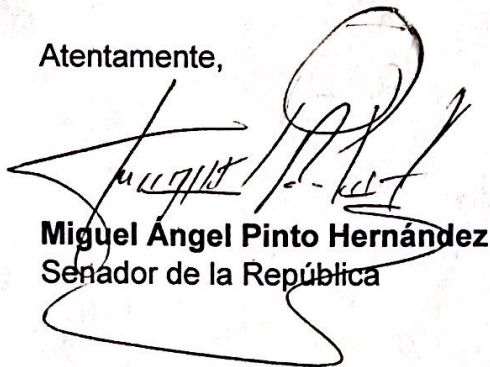 Atentamente,
Miguel Ángel Pinto Hernández
Senador de la República